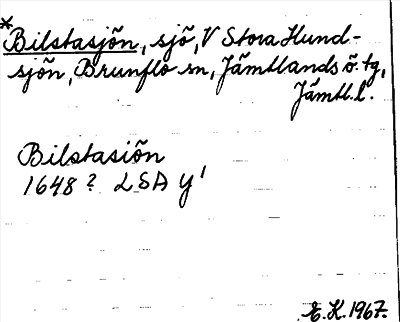 *Bilstasjön, sjö, V Stora Hund-
sjön, Brunflo sn, Jämtlands ö. tg,
Jämtl. l.
Bilstasiön
1648? LSA Y¹
E. K. 1967.